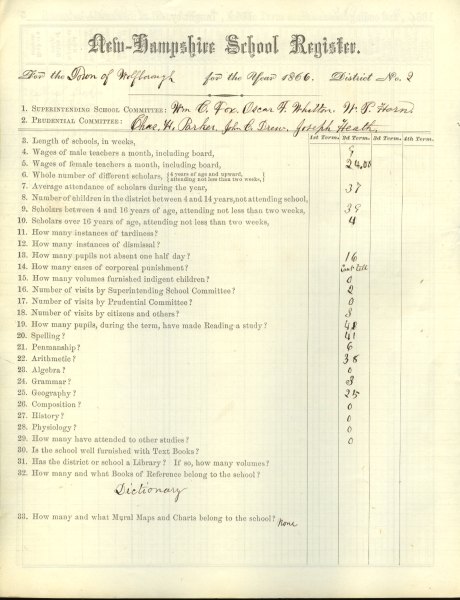 New-Hampshire School Register.
For the Town of Wolfborough for the Year 1866. District No. 2
1. Superintending School Committee: Wm C. Fox. Oscar F. Whitton W. P. Horne
2. Prudential Committee: Chas. H. Parker, John C. Drew, Joseph Heath,
1st Term. 2d Term. 3d Term. 4th Term.
3. Length of schools, in weeks, 9
4. Wages of male teachers a month, including board,
5. Wages of female teachers a month, including board, 24.00
6. Whole number of different scholars, {4 years of age and upward, attending not less than two weeks,}
7. Average attendance of scholars during the year, 37
8. Number of children in the district between 4 and 14 years, not attending school,
9. Scholars between 4 and 16 years of age, attending not less than two weeks, 39
10. Scholars over 16 years of age, attending not less than two weeks, 4
11. How many instances of tardiness?
12. How many instances of dismissal?
13. How many pupils not absent one half day? 16
14. How many cases of corporeal punishment? Cant tell
15. How many volumes furnished indigent children? 0
16. Number of visits by Superintending School Committee? 2
17. Number of visits by Prudential Committee? 0
18. Number of visits by citizens and others? 3
19. How many pupils, during the term, have made Reading a study? 48
20. Spelling? 41
21. Penmanship? 6
22. Arithmetic? 38
23. Algebra? 0
24. Grammar? 3
25. Geography? 25
26. Composition? 0
27. History? 0
28. Physiology? 0
29. How many have attended to other studies? 0
30. Is the school well furnished with Text Books?
31. Has the district or school a Library? If so, how many volumes?
32. How many and what Books of Reference belong to the school?
Dictionary
33. How many and what Mural Maps and Charts belong to the school? None